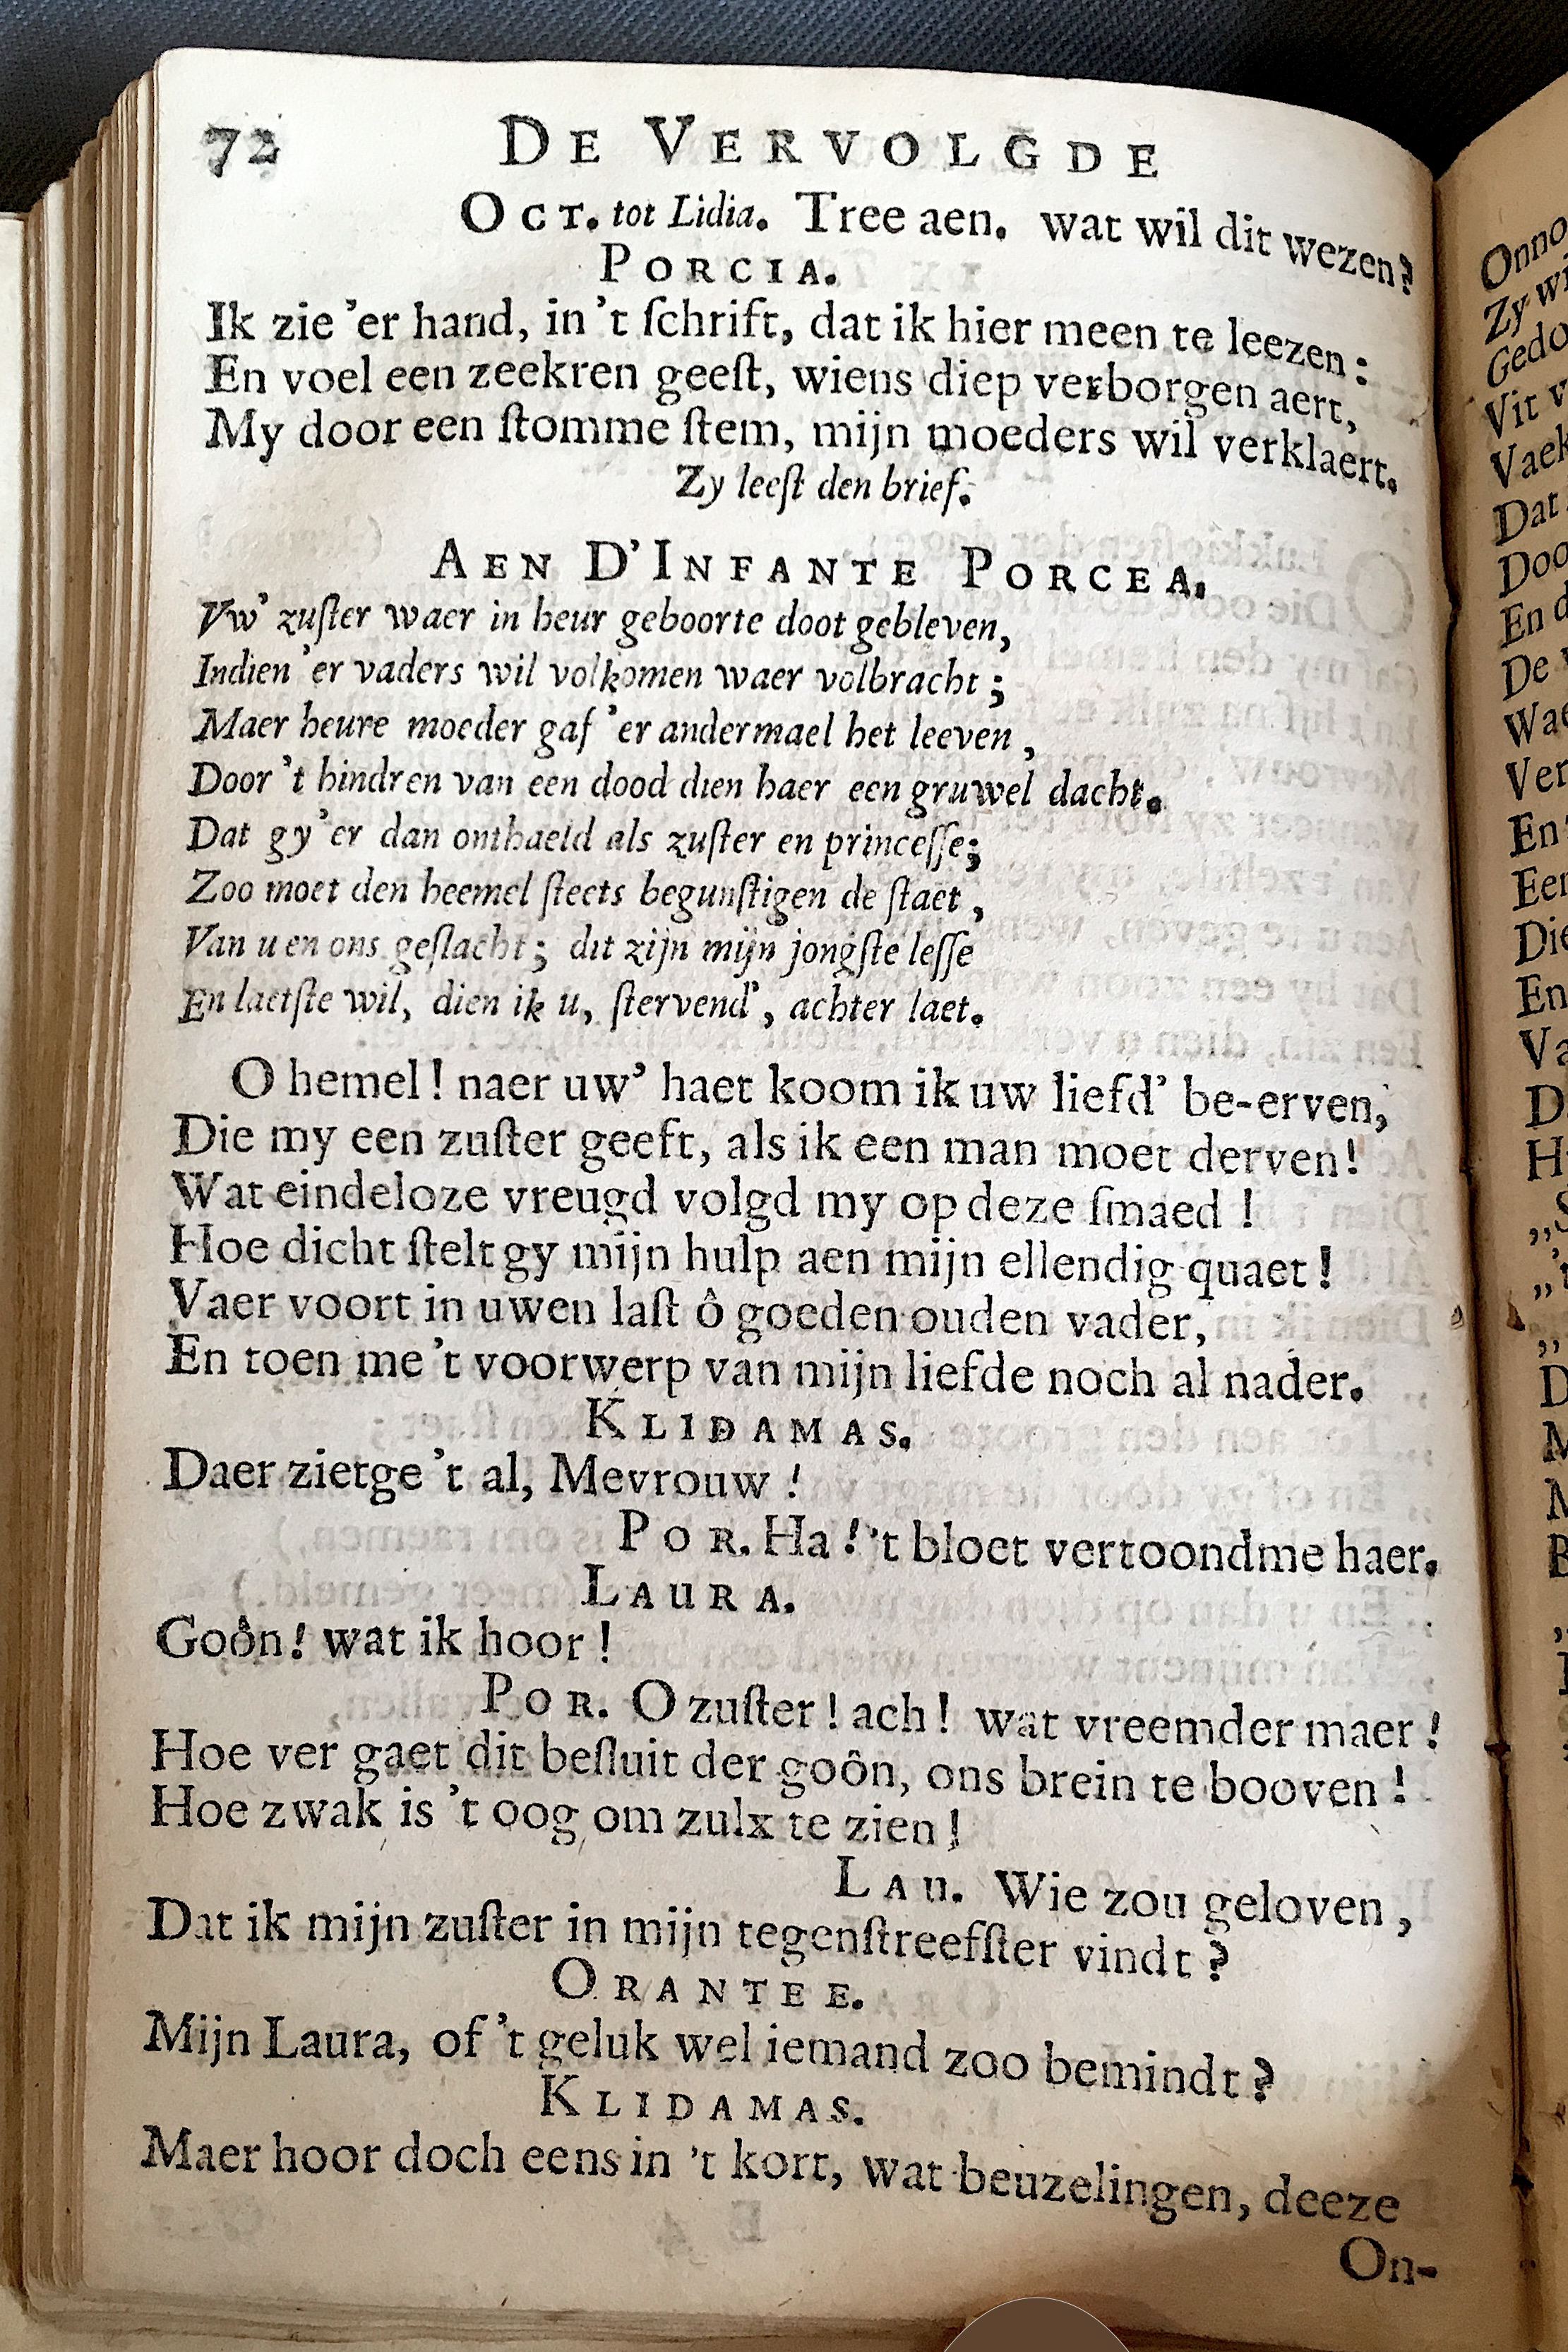 72 DE VERVOLGDE
OCT. tot Lidia. Tree aen. wat wil dit wezen?
PORCIA.
Ik zie 'er hand, in 't ſchrift, dat ik hier meen te leezen:
En voel een zeekren geeſt, wiens diep verborgen aert,
My door een ſtomme ſtem, mijn moeders wil verklaert.
Zy leeſt den brief.
AEN D'INFANTE PORCEA.
Vw' zuſter waer in heur geboorte doot gebleven,
Indien 'er vaders wil volkomen waer volbracht;
Maer heure moeder gaf 'er andermael het leeven,
Door 't hindren van een dood dien haer een gruwel dacht.
Dat gy 'er dan onthaeld als zuſter en princeſſe;
Zoo moet den heemel ſteets begunſtigen de ſtaet,
Van u en ons geſlacht; dit zijn mijn jongſte leſſe
En laetſte wil, dien ik u, ſtervend', achter laet.
O hemel! naer uw' haet koom ik uw liefd' be-erven,
Die my een zuſter geeft, als ik een man moet derven!
Wat eindeloze vreugd volgd my op deze ſmaed!
Hoe dicht ſtelt gy mijn hulp aen mijn ellendig quaet!
Vaer voort in uwen laſt ô goeden ouden vader,
En toen me 't voorwerp van mijn liefde noch al nader.
KLIDAMAS.
Daer zietge 't al, Mevrouw!
POR. Ha! 't bloet vertoondme haer.
LAURA.
Goôn! wat ik hoor!
POR. O zuſter! ach! wat vreemder maer!
Hoe ver gaet dit beſluit der goôn, ons brein te booven!
Hoe zwak is 't oog om zulx te zien!
LAU. Wie zou geloven,
Dat ik mijn zuſter in mijn tegenſtreefſter vindt?
ORANTEE.
Mijn Laura, of 't geluk wel iemand zoo bemindt?
KLIDAMAS.
Maer hoor doch eens in 't kort, wat beuzelingen, deeze
On-
Zy
Vit
Dat
En
De